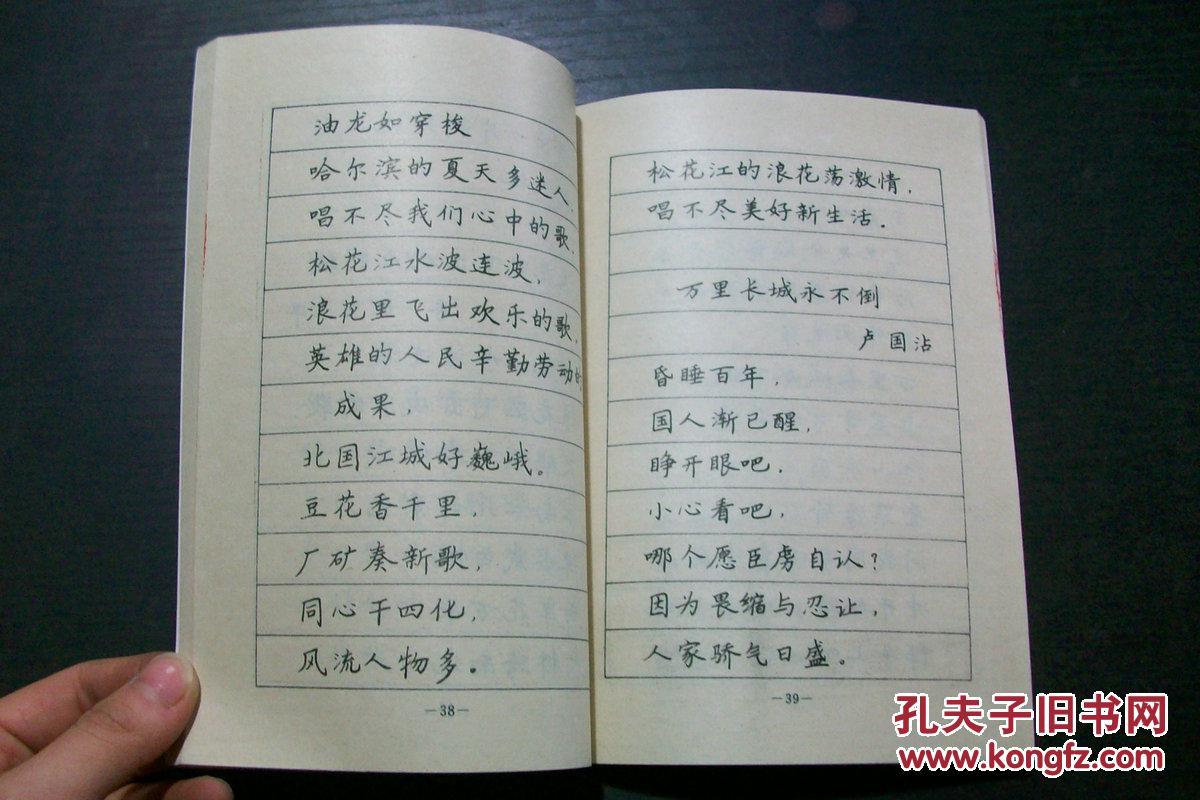 油龙如穿梭
哈尔滨的夏天多迷人,
唱不尽我们心中的歌.
松花江水波连波,
浪花里飞出欢乐的歌,
英雄的人民辛勤劳动的
成果,
北国江城好巍峨。
豆花香千里,
厂矿奏新歌,
同心干四化,
风流人物多。
—38—
松花江的浪花荡激情,
唱不尽美好新生活.
万里长城永不倒
卢国沾
昏睡百年,
国人渐已醒,
睁开眼吧,
小心看吧,
哪个愿臣虏自认?
因为畏缩与忍让,
人家骄气日盛。
—39—
孔夫子旧书网
www.kongfz.com